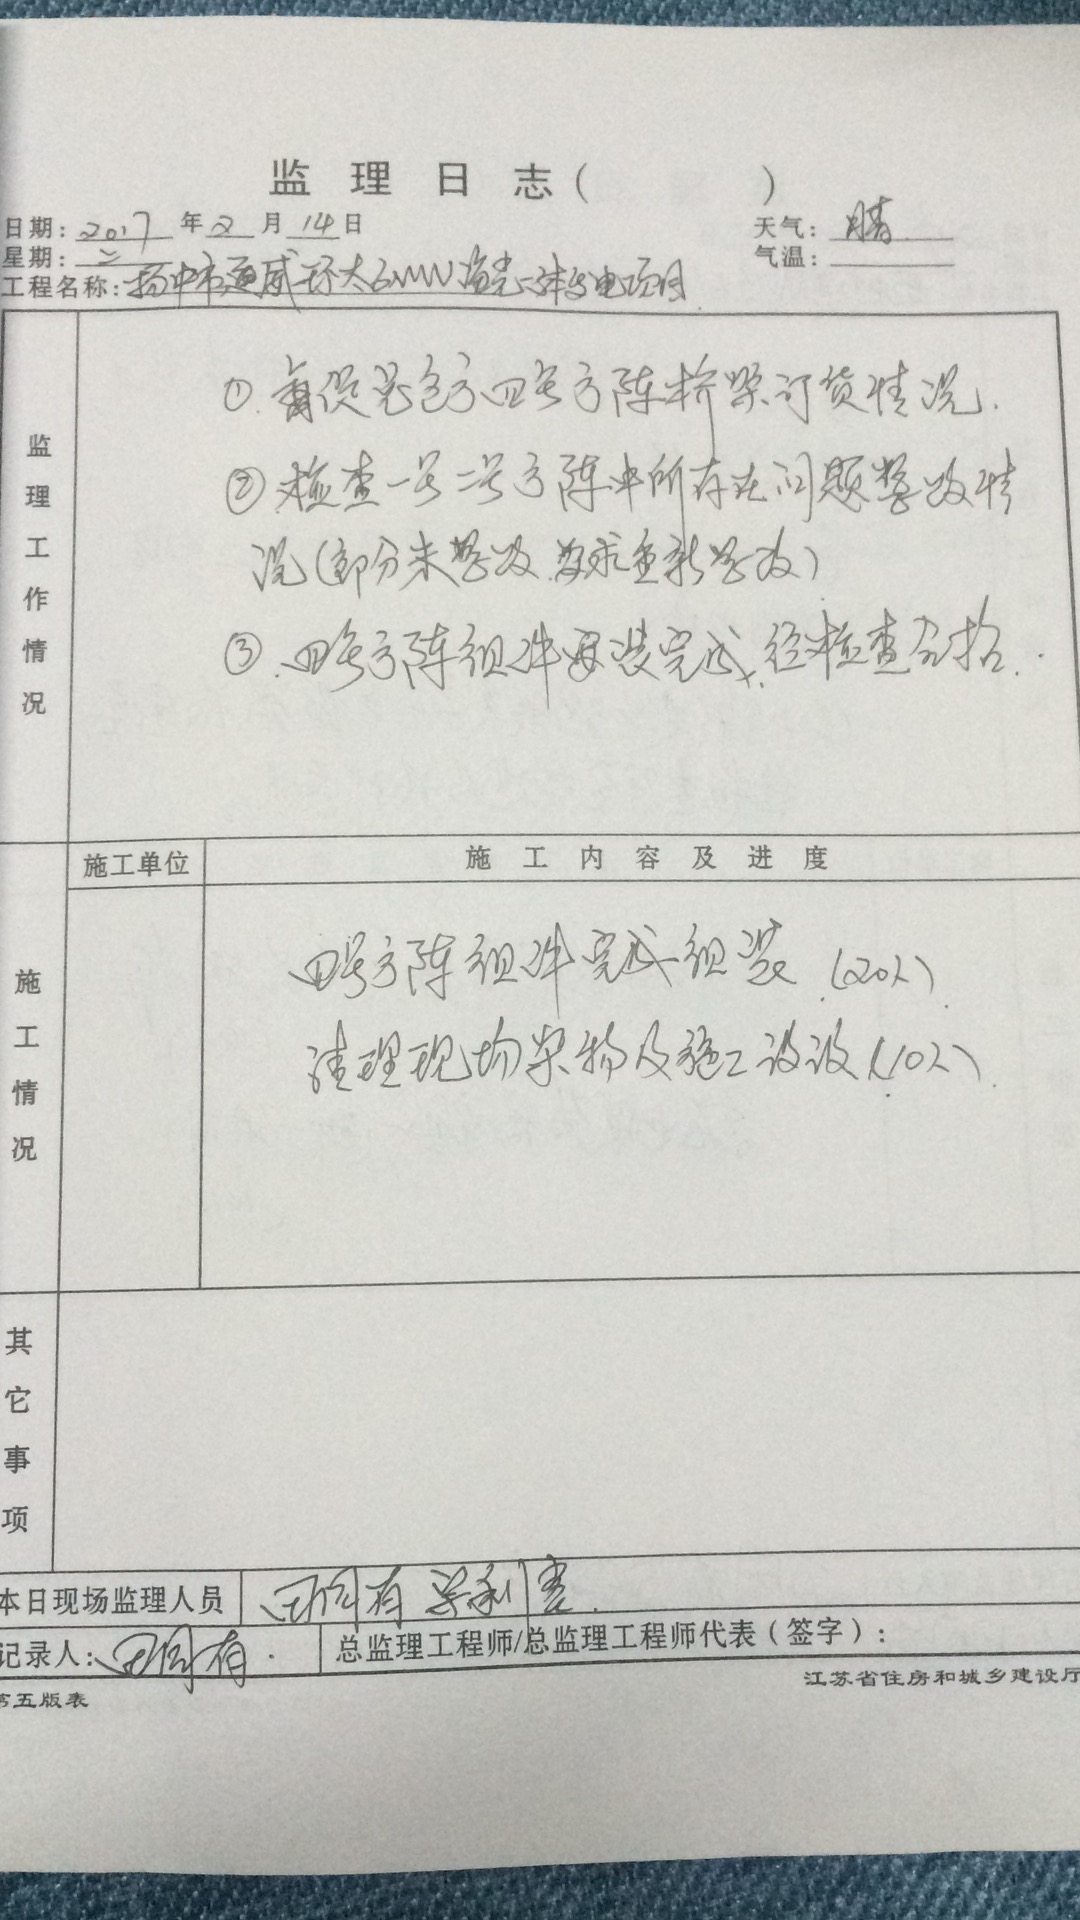 监理日志（ ）
日期：2017年2月14日 天气：晴
星期：二 气温：
工程名称：扬中市通威环太 MW渔光一体发电项目
监理工作情况
①.督促总包方四号方阵桥架订货情况.
②检查一号二号方阵中所存在问题整改情
况（部分未整改.要求重新整改）
③.四号方阵组件安装完成,经检查合格.
施工单位 施工内容及进度
施工情况
四号方阵组件完成组装（20人）
清理现场杂物及施工设设（10人）
其它事项
本日现场监理人员
记录人： 总监理工程师/总监理工程师代表（签字）：
第五版表 江苏省住房和城乡建设厅